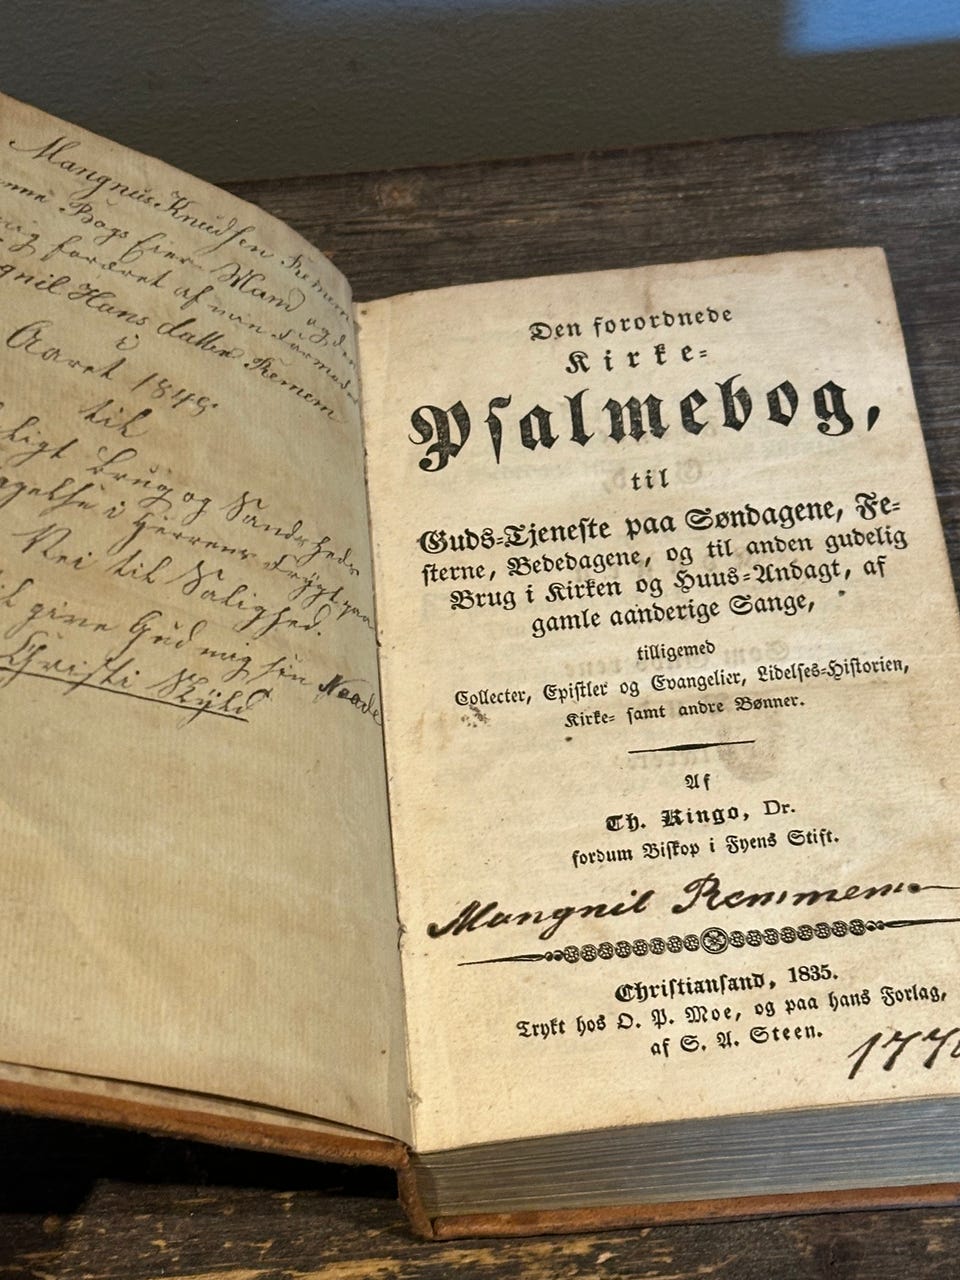 Mangnus Knudsen Remem
Bogs Eier Mand og den
mig foræret af min Farmoder
gnil Hans datter Remem
i
Aaret 1849
til
ligt Brug og Sandheds
i Herrens Frÿgt paa
Vei til Salighed.
give Gud mig sin Naade
Christi Skÿld
Den forordnede
Kirke-
Psalmebog,
til
Guds-Tjeneste paa Søndagene, Fe-
sterne, Bededagene, og til anden gudelig
Brug i Kirken og Huus-Andagt, af
gamle aanderige Sange,
tilligemed
Collecter, Epistler og Evangelier, Lidelses-Historien,
Kirke- samt andre Bønner.
Af
Th. Kingo, Dr.
fordum Biskop i Fyens Stift.
Mangnil Remmem
Christiansand, 1835.
Trykt hos O. P. Moe, og paa hans Forlag,
af S. A. Steen.
177